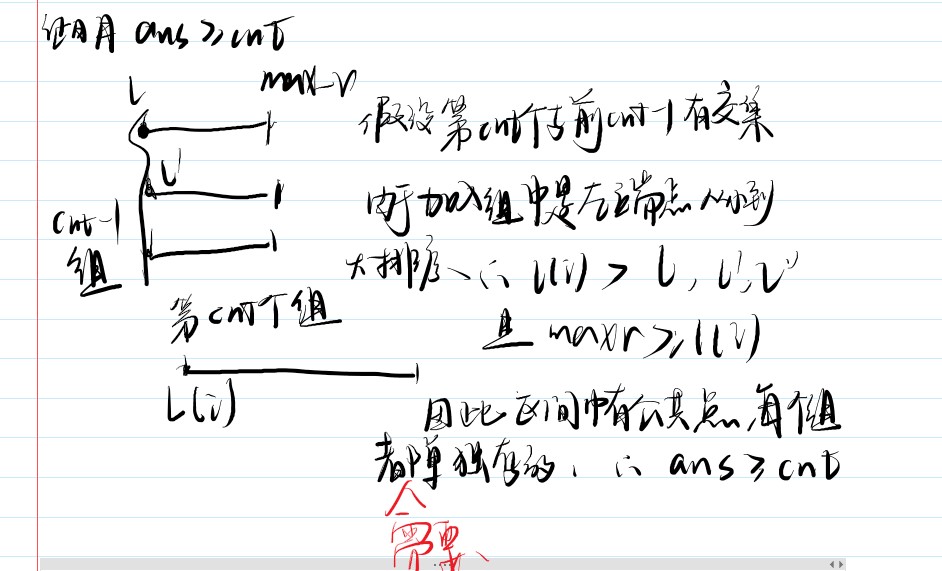 证明 ans ≥ cnt
L max_r
假设第cnt个与前cnt-1有交集
L'
cnt-1
组
由于加入组中是左端点从小到
大排序、∴ L(i) > L, L', L''
第cnt个组
且 maxr ≥ L(i)
L(i)
因此区间中有公共点,每个组
都单独存放, ∴ ans ≥ cnt
需要